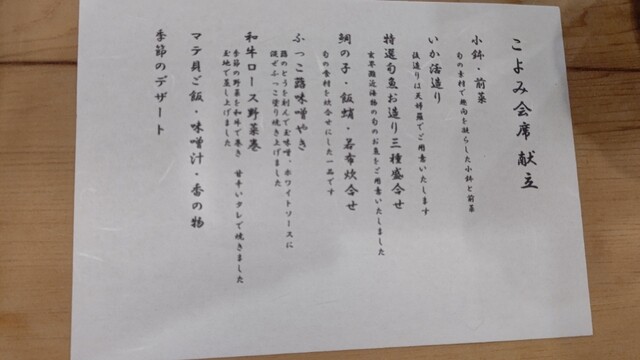 こよみ会席献立
小鉢・前菜
旬の素材で趣向を凝らした小鉢と前菜
いか活造り
後造りは天婦羅でご用意いたします
特選旬魚お造り三種盛合せ
玄界灘近海物の旬のお魚をご用意いたしました
鯛の子・飯蛸・若布炊合せ
旬の食材を炊合せにした一品です
ふっこ蕗味噌やき
蕗のとうを刻んで玉味噌、ホワイトソースに
混ぜふっこ塗り焼き上げました
和牛ロース野菜巻
季節の野菜を和牛で巻き 甘辛いタレで焼きました
玉地で蒸し上げました
マテ貝ご飯・味噌汁・香の物
季節のデザート